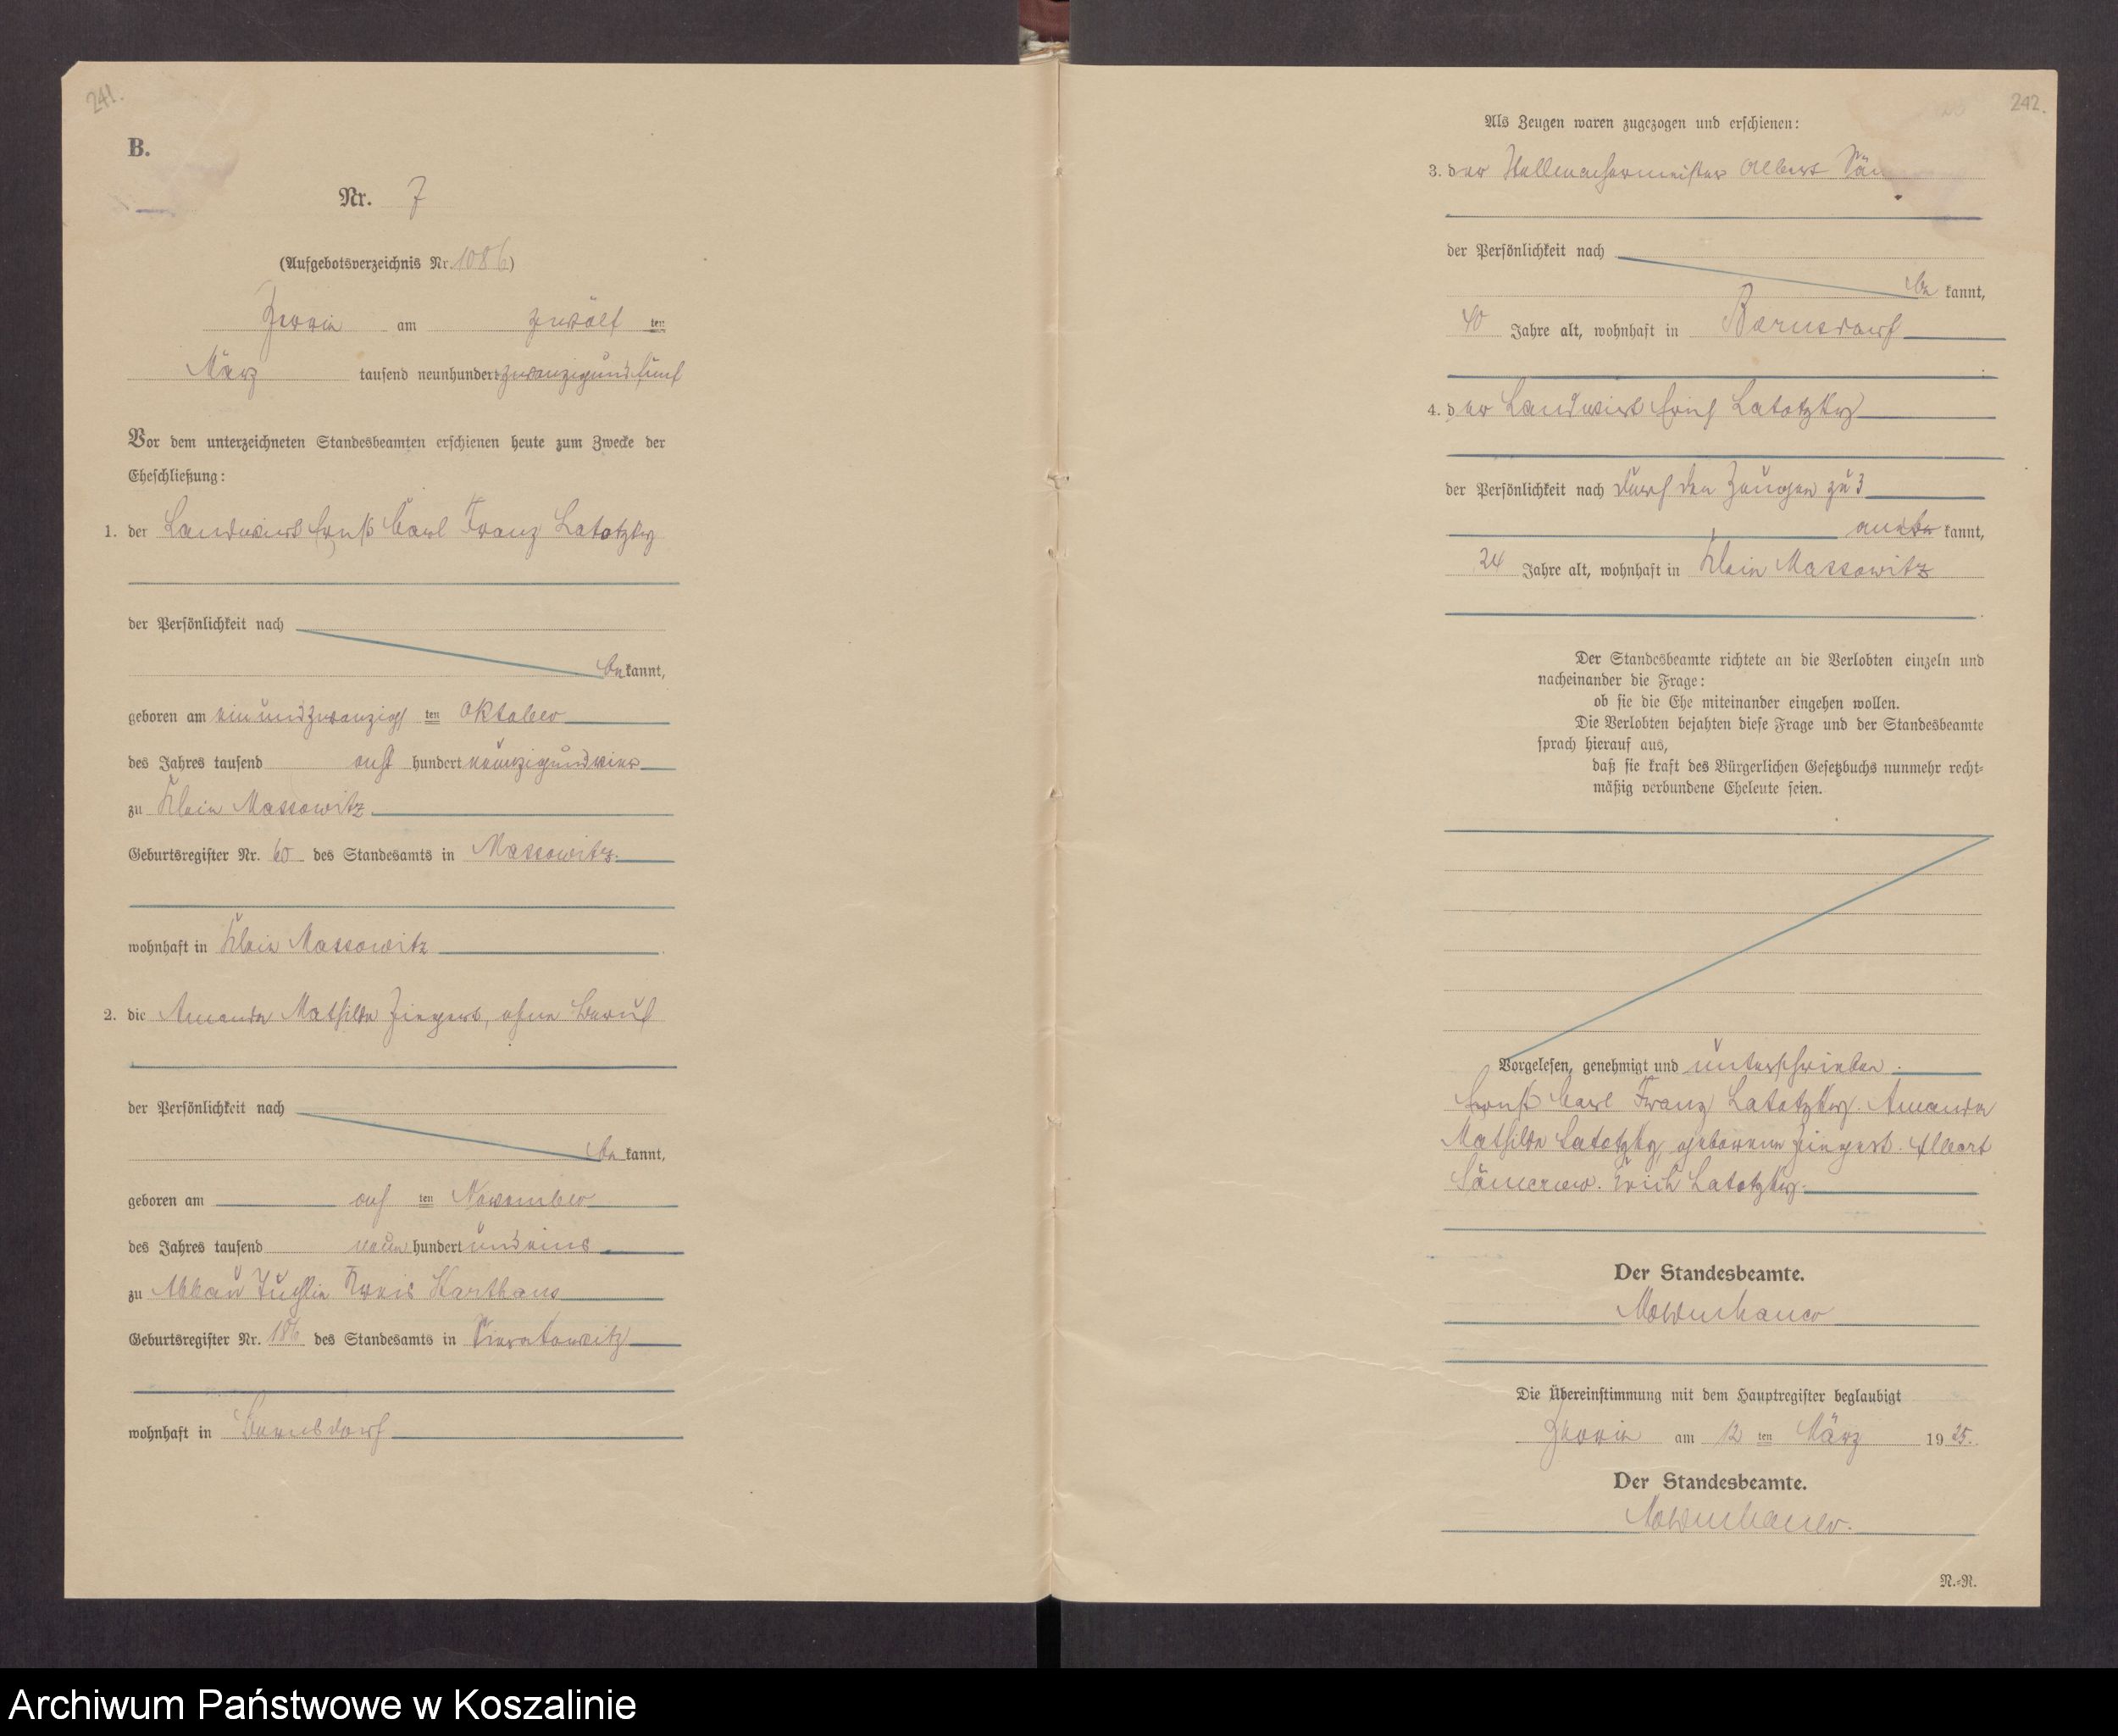 241.
B.
Nr. 7
(Aufgebotsverzeichnis Nr. 1086)
Jerrin am zwölf ten
März tausend neunhundert zwanzigundfünf
Vor dem unterzeichneten Standesbeamten erschienen heute zum Zwecke der
Eheschließung:
1. der Landwirt Ernst Carl Franz Latotzky
der Persönlichkeit nach
be kannt,
geboren am einundzwanzig ten Oktober
des Jahres tausend acht hundert neunzigundvier
zu Klein Massowitz
Geburtsregister Nr. 60 des Standesamts in Massowitz.
wohnhaft in Klein Massowitz
2. die Amanda Mathilde Ziegert, ohne Beruf
der Persönlichkeit nach
be kannt,
geboren am acht ten November
des Jahres tausend neun hundert undeins
zu Abbau Tuchlin Kreis Karthaus
Geburtsregister Nr. 186 des Standesamts in Sierakowitz
wohnhaft in Bernsdorf
242.
Als Zeugen waren zugezogen und erschienen:
3. der Stellmachermeister Albert
der Persönlichkeit nach
be kannt,
40 Jahre alt, wohnhaft in Bernsdorf
4. der Landwirt Erich Latotzky
der Persönlichkeit nach durch den Zeugen zu 3
anerkannt,
24 Jahre alt, wohnhaft in Klein Massowitz
Der Standesbeamte richtete an die Verlobten einzeln und
nacheinander die Frage:
ob sie die Ehe miteinander eingehen wollen.
Die Verlobten bejahten diese Frage und der Standesbeamte
sprach hierauf aus,
daß sie kraft des Bürgerlichen Gesetzbuchs nunmehr recht-
mäßig verbundene Eheleute seien.
Vorgelesen, genehmigt und unterschrieben.
Ernst Carl Franz Latotzky. Amanda
Mathilde Latotzky, geborene Ziegert. Albert
Erich Latotzky.
Der Standesbeamte.
Moldenhauer
Die Übereinstimmung mit dem Hauptregister beglaubigt
Jerrin am 12 ten März 19 25.
Der Standesbeamte.
Moldenhauer.
N.-R.
Archiwum Państwowe w Koszalinie